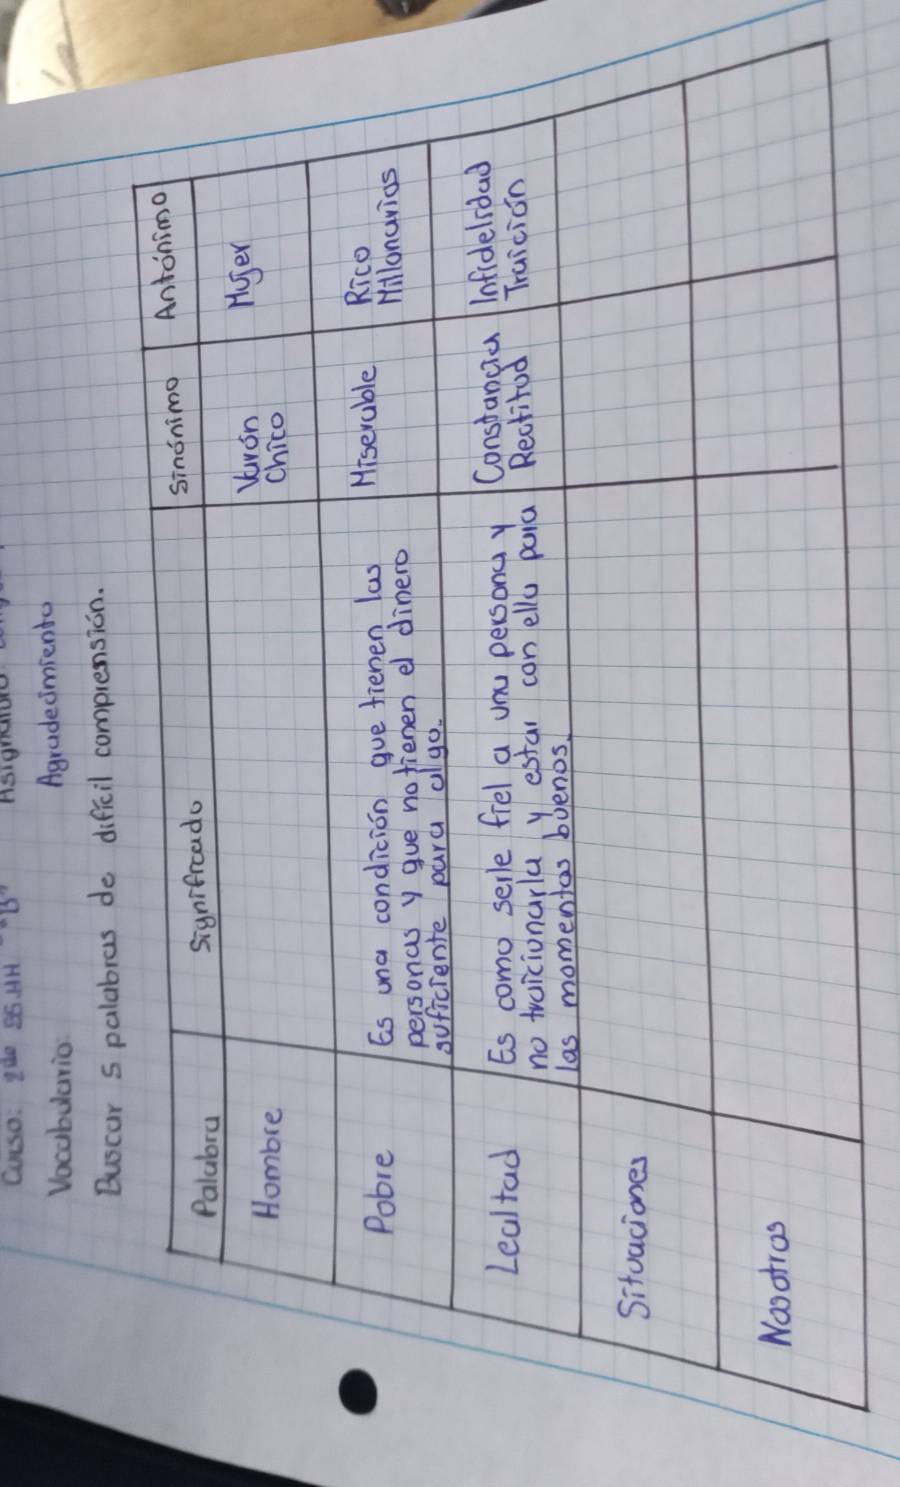 Curso: 2do SS.HH "B"
Agradecimiento
Vocabulario
Buscar 5 palabras de difícil comprensión.
Palabra Significado Sinónimo Antónimo
Hombre Varón Mujer
Chico
Pobre Es una condición que tienen las Miserable Rico
personas y que no tienen el dinero Millonarios
suficiente para algo.
Lealtad Es como serle fiel a una persona y Constancia Infidelidad
no traicionarla y estar con ella para Rectitud Traición
los momentos buenos.
Situaciones
Nosotros